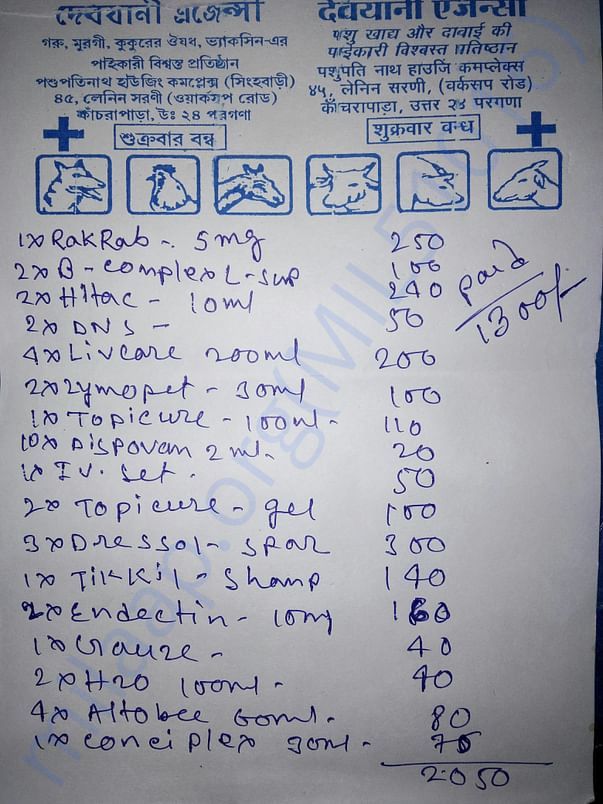 দেবযানী এজেন্সী
গরু, মুরগী, কুকুরের ঔষধ, ভ্যাকসিন-এর
পাইকারী বিশ্বস্ত প্রতিষ্ঠান
পশুপতিনাথ হাউজিং কমপ্লেক্স (সিংহবাড়ী)
৪৫, লেনিন সরণী (ওয়ার্কশপ রোড)
কাঁচরাপাড়া, উঃ ২৪ পরগণা
শুক্রবার বন্ধ
देवयानी एजेन्सी
पशु खाद्य और दावाई की
पाईकारी विश्वस्त प्रतिष्ठान
पशुपति नाथ हाउजिं कमप्लेक्स
४५, लेनिन सरणी, (वर्कसप रोड)
काँचरापाड़ा, उत्तर २४ परगणा
शुक्रवार वन्ध
1x RakRab - 5mg 250
2x B-complex L-sup 100
2x Hitac - 10ml 240
2x DNS - 50
4x Livcare 200ml 200
2x Zymopet - 30ml 100
1x Topicure - 100ml - 110
10x Dispovan 2ml - 20
1x I.V. set - 50
2x Topicure - gel 100
3x Dressol - spar 300
1x Tikkil - Shamp 140
2x Endectin - 10mg 160
1x Gauze - 40
2x H20 100ml - 40
4x 60ml - 80
1x conciplex 30ml -
2050
paid
1300/-
milaap.org